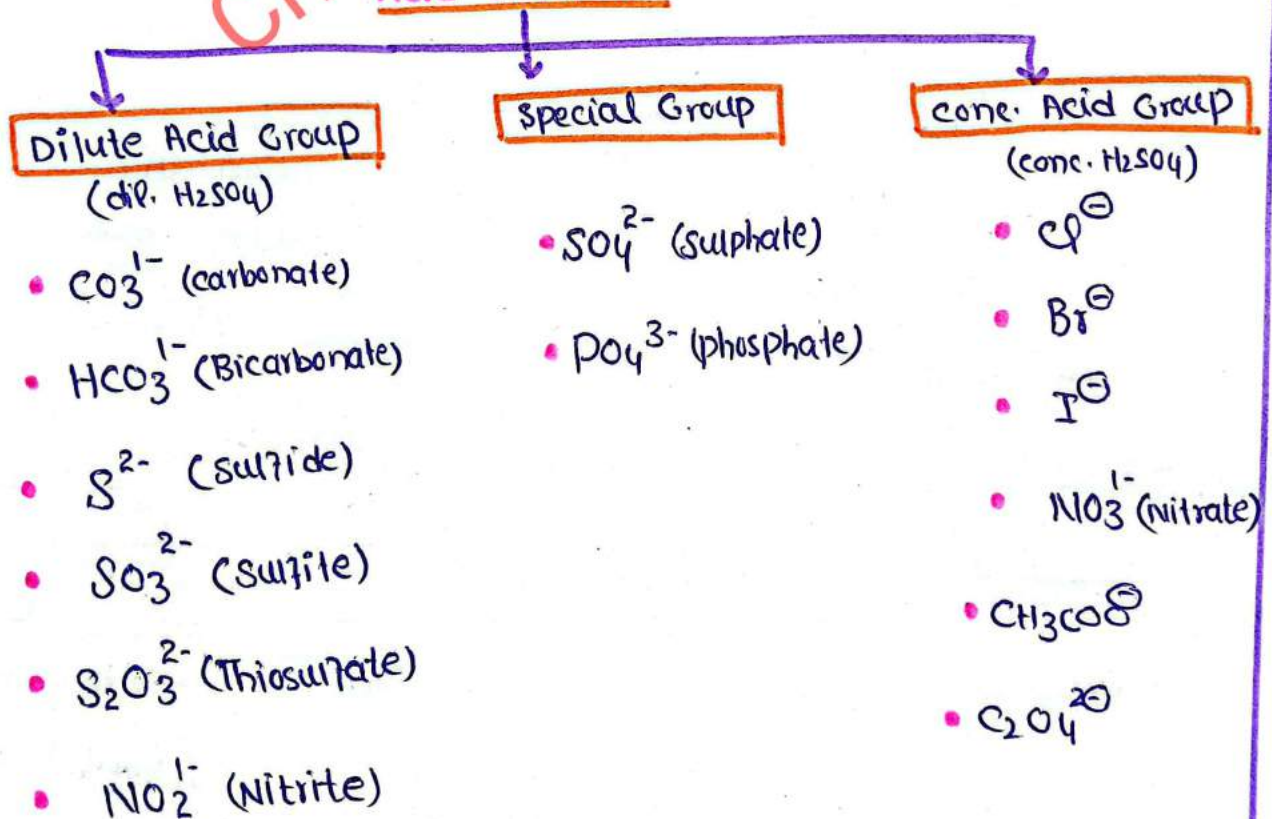 Dilute Acid Group
(dil. H2SO4)
• CO3^1- (carbonate)
• HCO3^1- (Bicarbonate)
• S^2- (Sulfide)
• SO3^2- (Sulfite)
• S2O3^2- (Thiosulfate)
• NO2^1- (Nitrite)
Special Group
• SO4^2- (sulphate)
• PO4^3- (phosphate)
conc. Acid Group
(conc. H2SO4)
• Cl^⊖
• Br^⊖
• I^⊖
• NO3^1- (Nitrate)
• CH3COO^⊖
• C2O4^2⊖